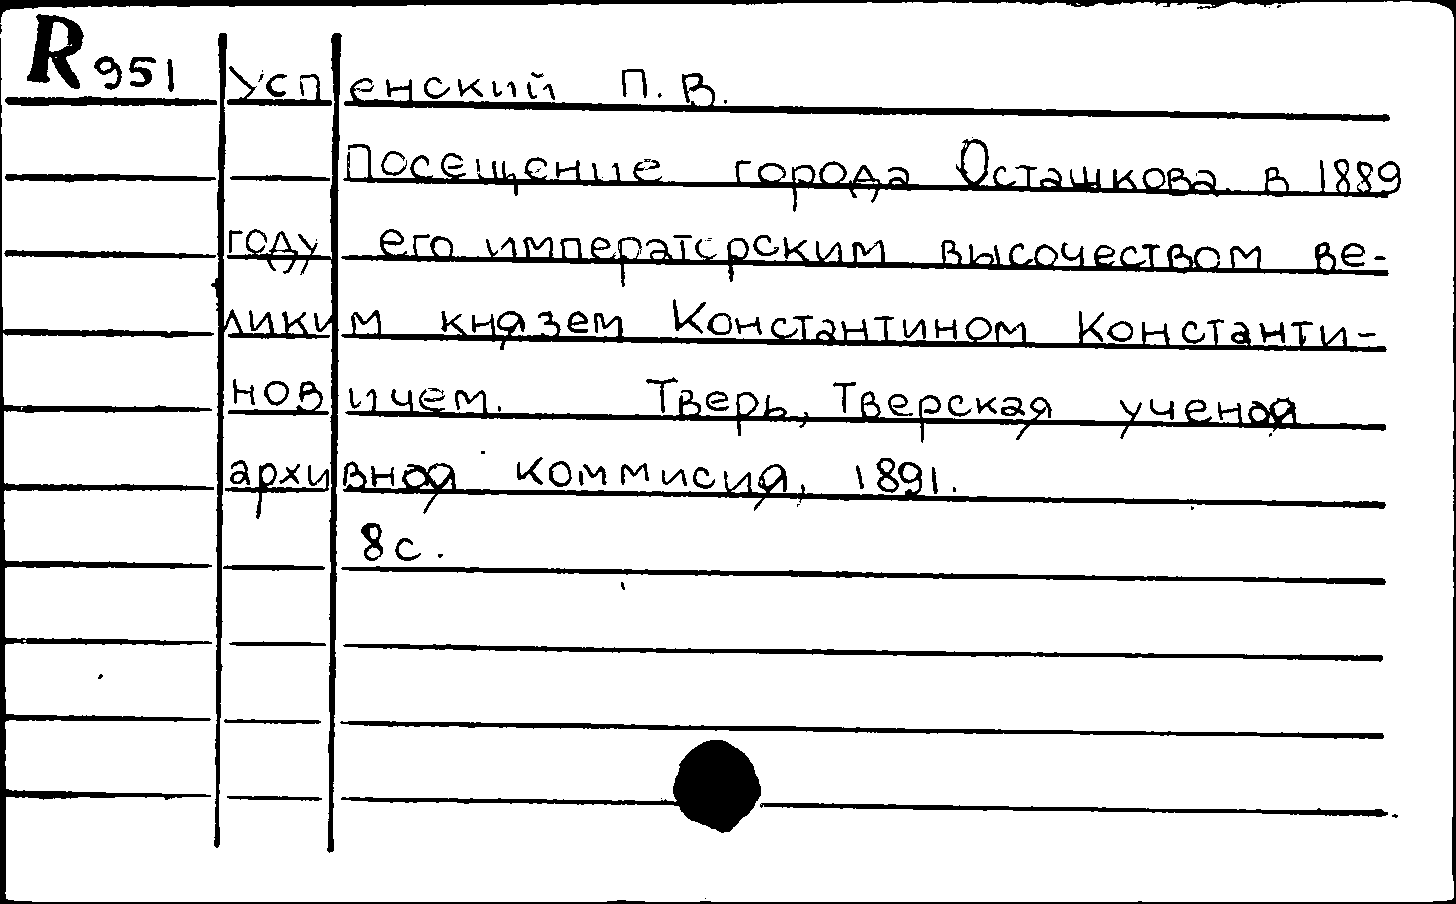 R 951 Успенский П. В.
Посещение города Осташкова в 1889
году его императорским высочеством ве-
ликим князем Константином Константи-
новичем. Тверь, Тверская ученая
архивная коммисия, 1891.
8 с.